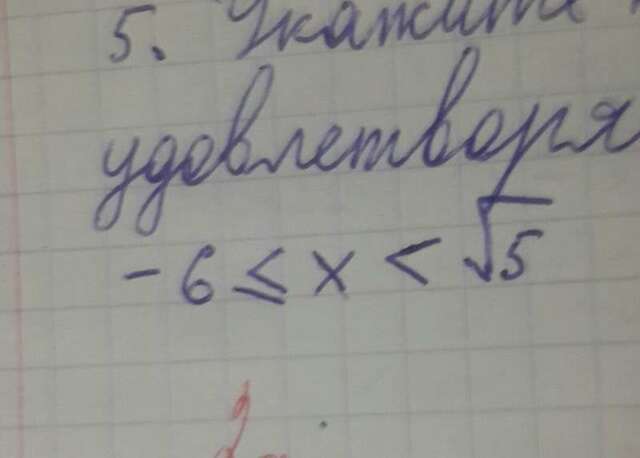 5. Укажите
удовлетворя
-6 ≤ x < √5